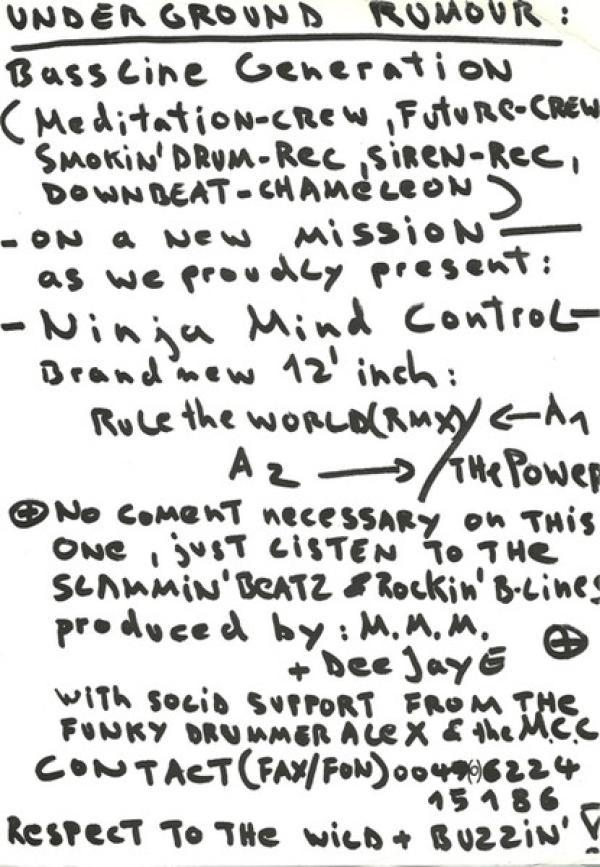 UNDERGROUND RUMOUR:
BassLine Generation
(Meditation-CREW, Future-CREW
SMOKIN'DRUM-Rec, SIREN-REC,
DOWNBEAT-CHAMELEON)
- ON a New Mission —
as we proudly present:
- Ninja Mind Control -
Brand new 12' inch:
Rule the WORLD(RMX)/ ← A1
A2 → /THE Power
⊕ No coment necessary on THIS
ONE, just LISTEN TO THE
SLAMMIN'BEATZ & Rockin' B-Lines
produced by: M.M.M. ⊕
+ Dee Jay E
WITH SOLID SUPPORT FROM THE
FUNKY DRUMMER ALEX & the M.C.C
CONTACT (FAX/FON) 0049(0)6224
15186
RESPECT TO THE WILD + BUZZIN'!